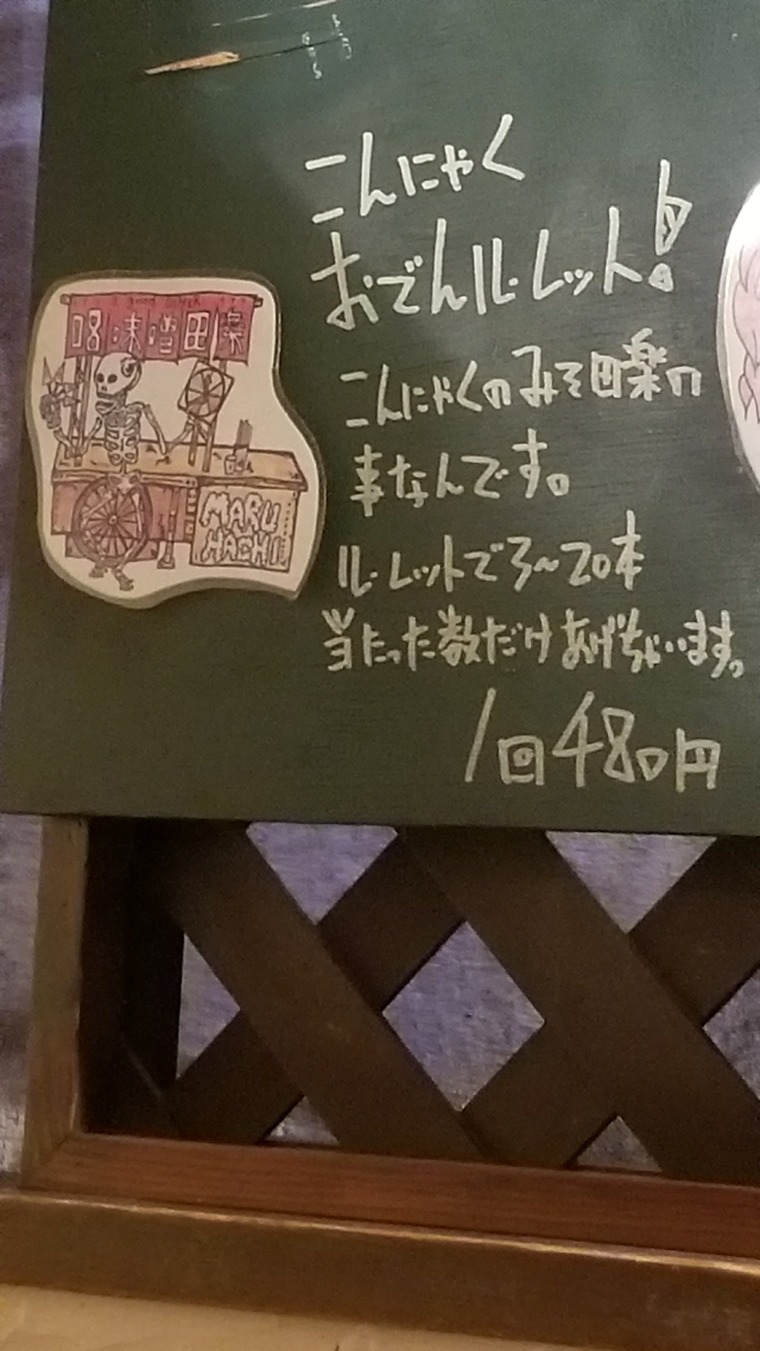 こんにゃく
おでんルーレット!
こんにゃくのみそ田楽の
事なんです。
ルーレットで3~20本
当たった数だけあげちゃいます。
1回480円
味噌田楽
MARU
HACHI